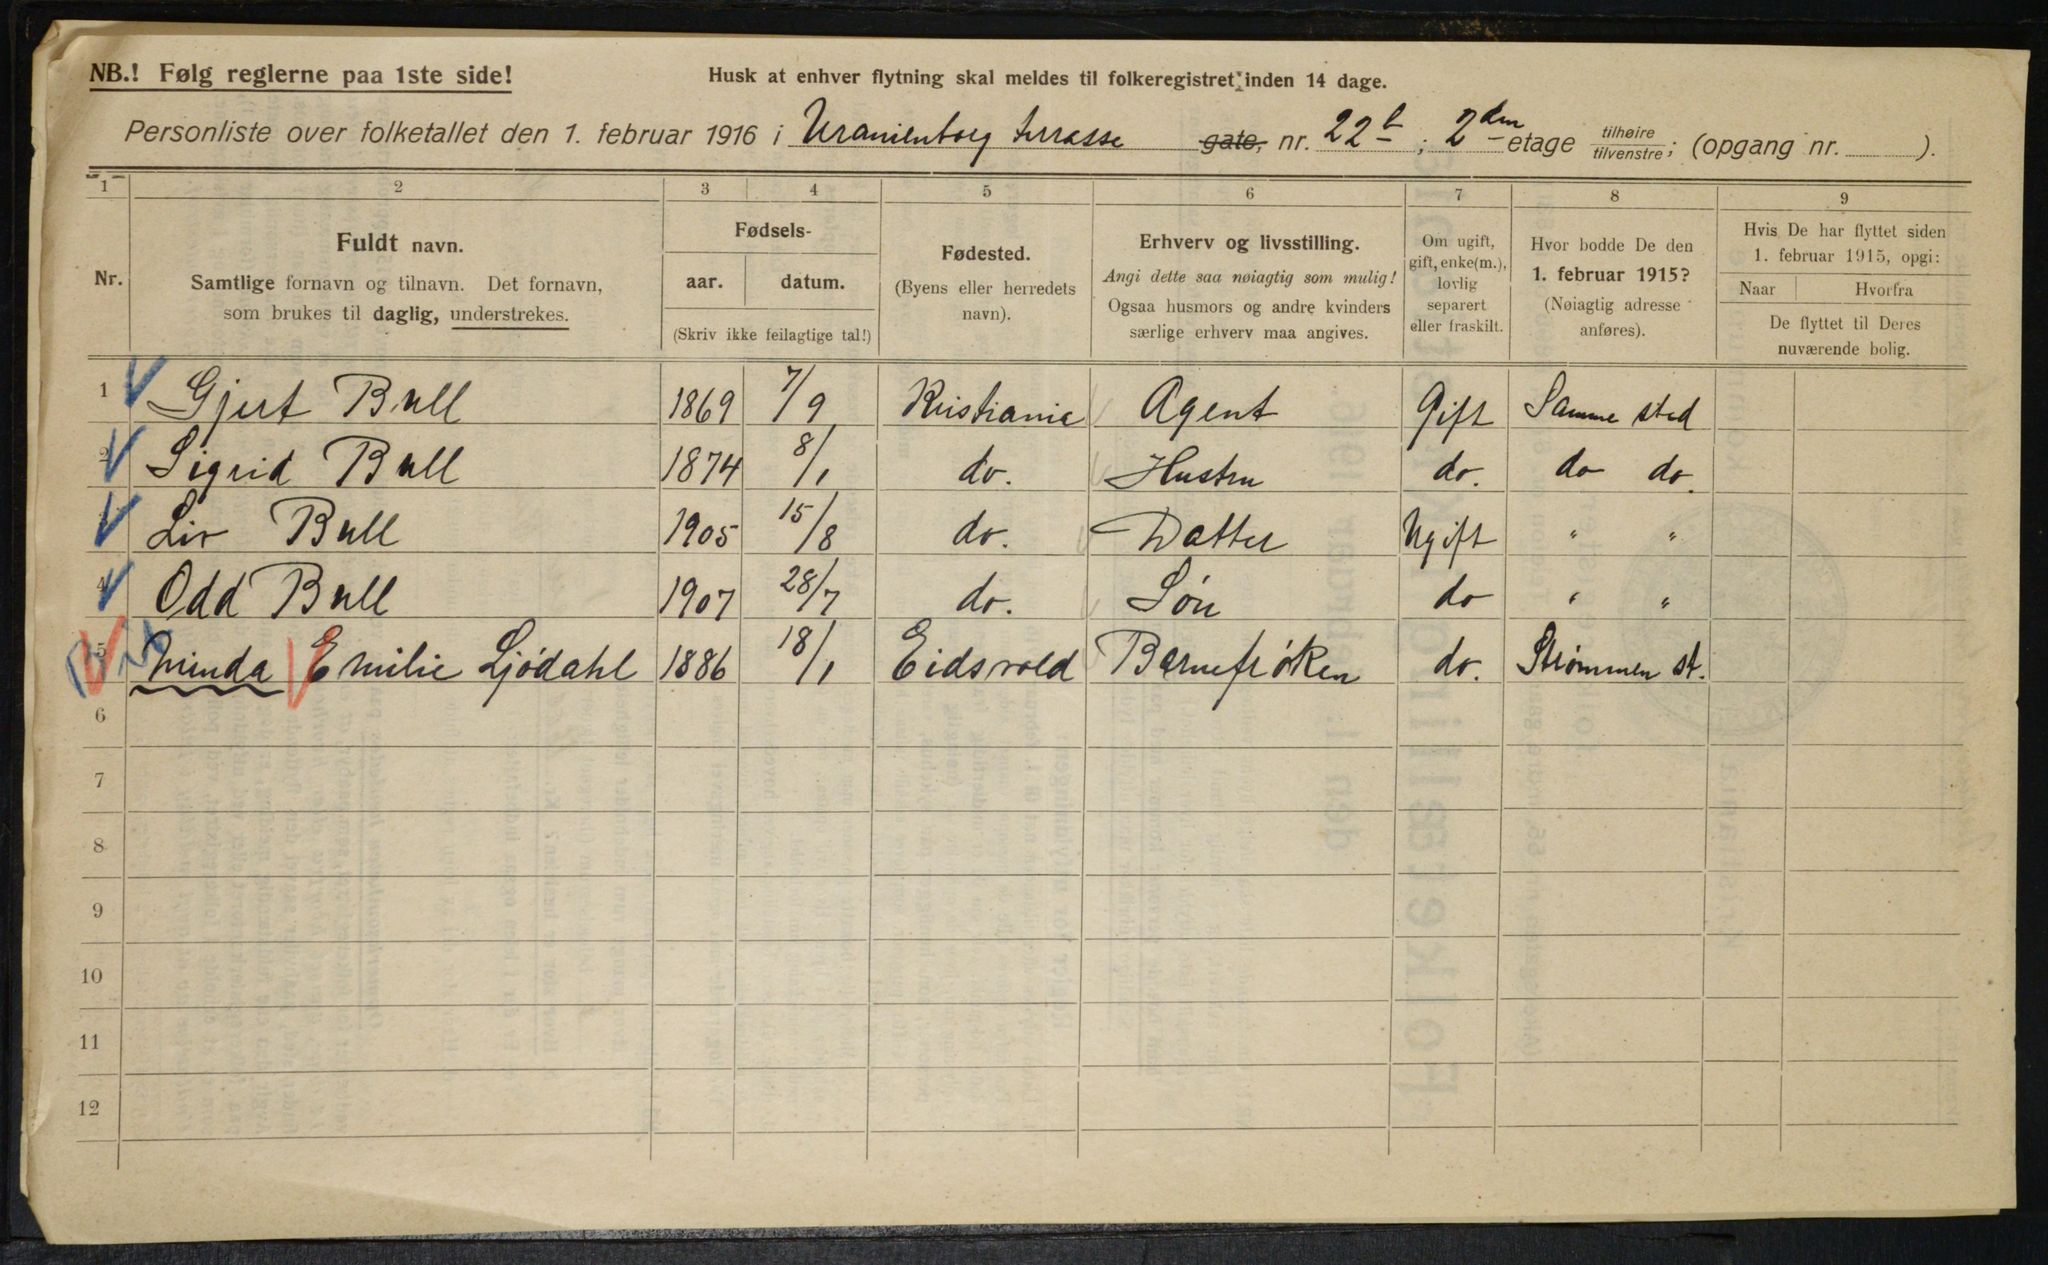 NB.! Følg reglerne paa 1ste side!
Husk at enhver flytning skal meldes til folkeregistret inden 14 dage.
Personliste over folketallet den 1. februar 1916 i Uranienborg terrasse gate, nr. 22b; 2den etage tilhøire tilvenstre; (opgang nr. ).
1 2 3 4 5 6 7 8 9
Nr.
Fuldt navn.
Samtlige fornavn og tilnavn. Det fornavn,
som brukes til daglig, understrekes.
Fødsels-
aar. datum.
(Skriv ikke feilagtige tal!)
Fødested.
(Byens eller herredets
navn).
Erhverv og livsstilling.
Angi dette saa nøiagtig som mulig!
Ogsaa husmors og andre kvinders
særlige erhverv maa angives.
Om ugift,
gift, enke(m.),
lovlig
separert
eller fraskilt.
Hvor bodde De den
1. februar 1915?
(Nøiagtig adresse
anføres).
Hvis De har flyttet siden
1. februar 1915, opgi:
Naar Hvorfra
De flyttet til Deres
nuværende bolig.
1 Gjert Bull 1869 7/9 Kristiania Agent Gift Samme sted
2 Sigrid Bull 1874 8/1 do. Hustru do. do do.
3 Liv Bull 1905 15/8 do. Datter Ugift " "
4 Odd Bull 1907 28/7 do. Søn do " "
5 Minda Emilie Ljödahl 1886 18/1 Eidsvold Barnefrøken do. Strømmen st.
6
7
8
9
10
11
12